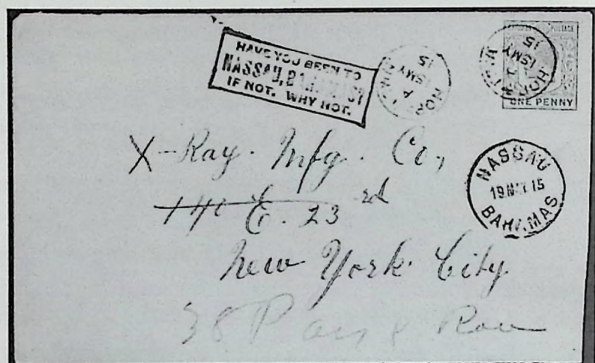 HAVE YOU BEEN TO
NASSAU, BAHAMAS?
IF NOT. WHY NOT.
15MY
15
15MY
15
ONE PENNY
NASSAU
15
BAHAMAS
X-Ray. Mfg. Co,
140 E. 23rd
New York City
38 Park Row